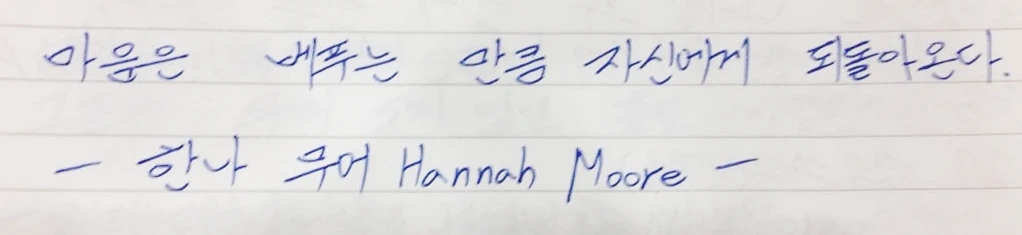 마음은 베푸는 만큼 자신에게 되돌아온다.
- 한나 무어 Hannah Moore -